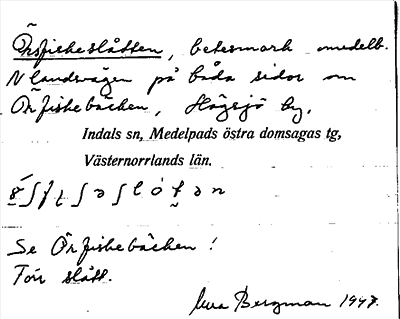 Örfiskeslåtten, betesmark omedelb.
N landsvägen på båda sidor om
Örfiskebäcken, Högsjö by,
Indals sn, Medelpads östra domsagas tg,
Västernorrlands län.
Se Örfiskebäcken!
Torr slått.
Bergman 1947.